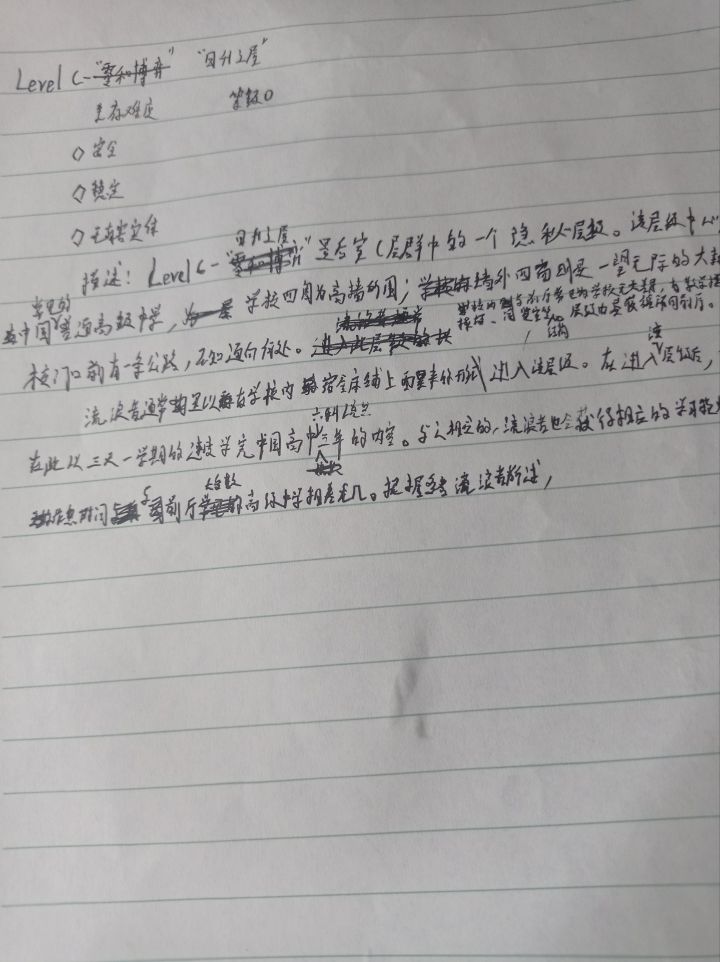 Level C-"零和博弈" "日升之屋"
生存难度 等级0
◇ 安全
◇ 稳定
◇ 无害实体
日升之屋
描述：Level C-"零和博弈"是后室C层群中的一个隐秘层级。该层级中心
常见的
中国普通高级中学，学校四周为高墙所围；墙外四周则是一望无际的大
校门口前有一条公路，不知通向何处。
流浪者通常以在学校内宿舍床铺上醒来的形式进入该层级。在进入层级后，
六科
在此以三天一学期的速度学完中国高中三年的内容。与之相应的，流浪者也会获得相应的学习能
大多数
时间与前厅高级中学相差无几。据流浪者所述，